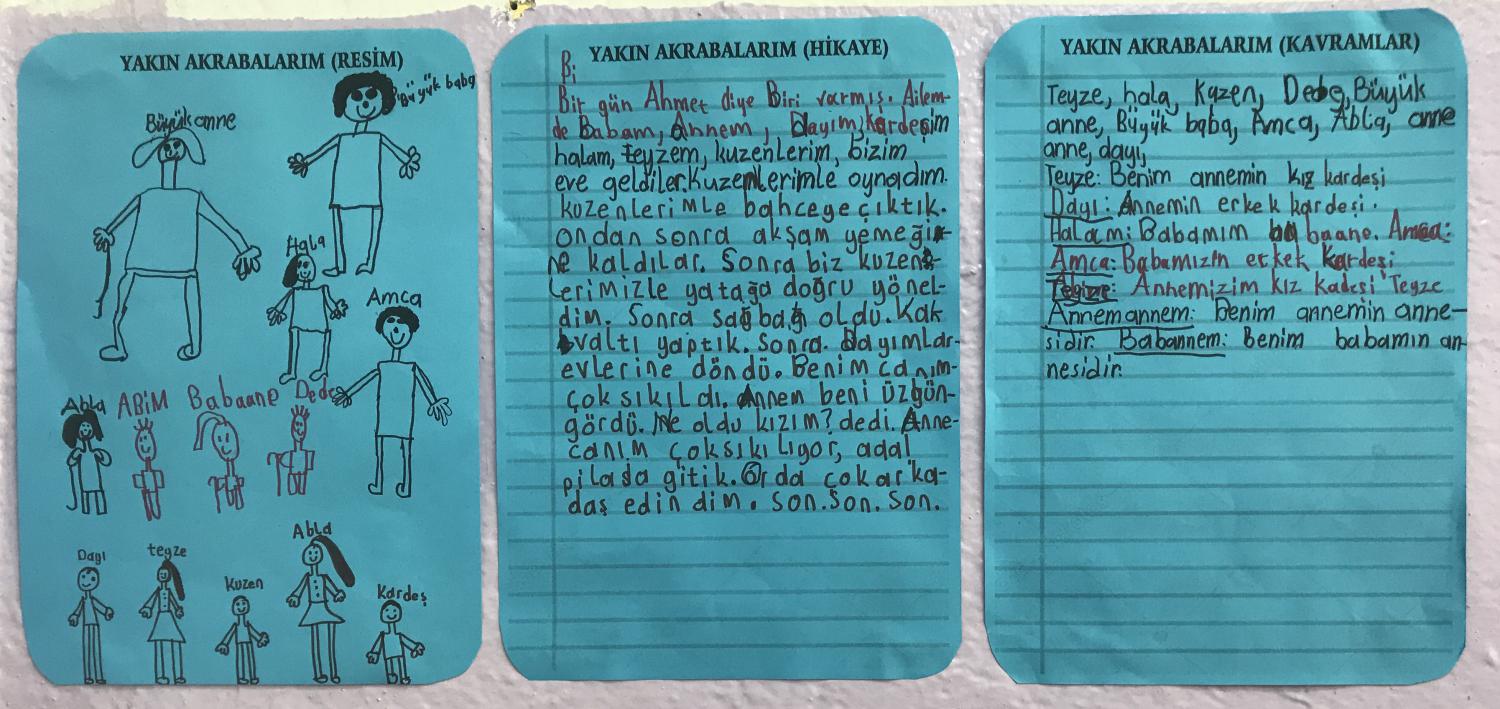 YAKIN AKRABALARIM (RESİM)
Büyük baba
Büyük anne
Hala
Amca
Abla
ABİM
Babaane
Dede
Dayı
teyze
Kuzen
Abla
Kardeş
YAKIN AKRABALARIM (HİKAYE)
Bi
Bir gün Ahmet diye Biri varmış. Ailem-
de Babam, Annem, Dayım, kardeşim
halam, teyzem, kuzenlerim, bizim
eve geldiler. Kuzenlerimle oynadım.
kuzenlerimle bahceye çıktık.
ondan sonra akşam yemeği-
ne kaldılar. Sonra biz kuzen-
lerimizle yatağa doğru yönel-
dim. Sonra sağbağı oldu. Kak
valtı yaptık. Sonra. Dayımlar-
evlerine döndü. Benim canım-
çok sıkıldı. Annem beni üzgün-
gördü. Ne oldu kızım? dedi. Anne-
canım çoksıkılıyor, adal
pilada gitik. Orda çokarka-
daş edin dim. Son. Son. Son.
YAKIN AKRABALARIM (KAVRAMLAR)
Teyze, hala, Kuzen, Dede, Büyük
anne, Büyük baba, Amca, Abla, anne
anne, dayı,
Teyze: Benim annemin kız kardeşi
Dayı: Annemin erkek kardeşi.
Halam: Babamım babaane. Amca:
Amca: Babamızın erkek Kardeşi
Teyze: Annemizim kız kadesi Teyze
Annemannem: Benim annemin anne-
sidir. Babannem: benim babamın an-
nesidir.